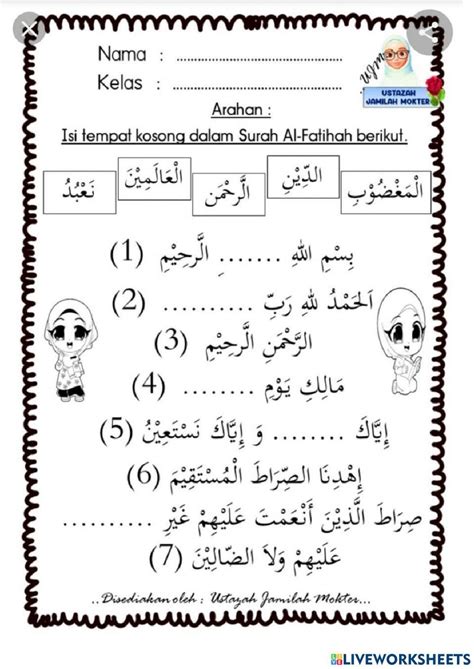 Nama : ...............................................
Kelas : ...............................................
USTAZAH
JAMILAH MOKTER
Arahan :
Isi tempat kosong dalam Surah Al-Fatihah berikut.
الْمَغْضُوْبِ الدِّيْنِ الَّرحْمَن الْعَالَمِيْنَ نَعْبُدُ
بِسْمِ اللهِ ........ الَّرحِيْمِ (1)
اَلحَمْدُ للهِ رَبِّ .......... (2)
الرَّحْمَنِ الَّرحِيْمِ (3)
مَالِكِ يَوْمِ ........ (4)
إِيَّاكَ ........ وَ إِيَّاكَ نَسْتَعِيْنُ (5)
اِهْدِنَا الصِّرَاطَ الْمُسْتَقِيْمَ (6)
صِرَاطَ الَّذِيْنَ أَنْعَمْتَ عَلَيْهِمْ غَيْرِ ..........
عَلَيْهِمْ وَلاَ الضَّالِيْنَ (7)
..Disediakan oleh : Ustazah Jamilah Mokter...
LIVEWORKSHEETS